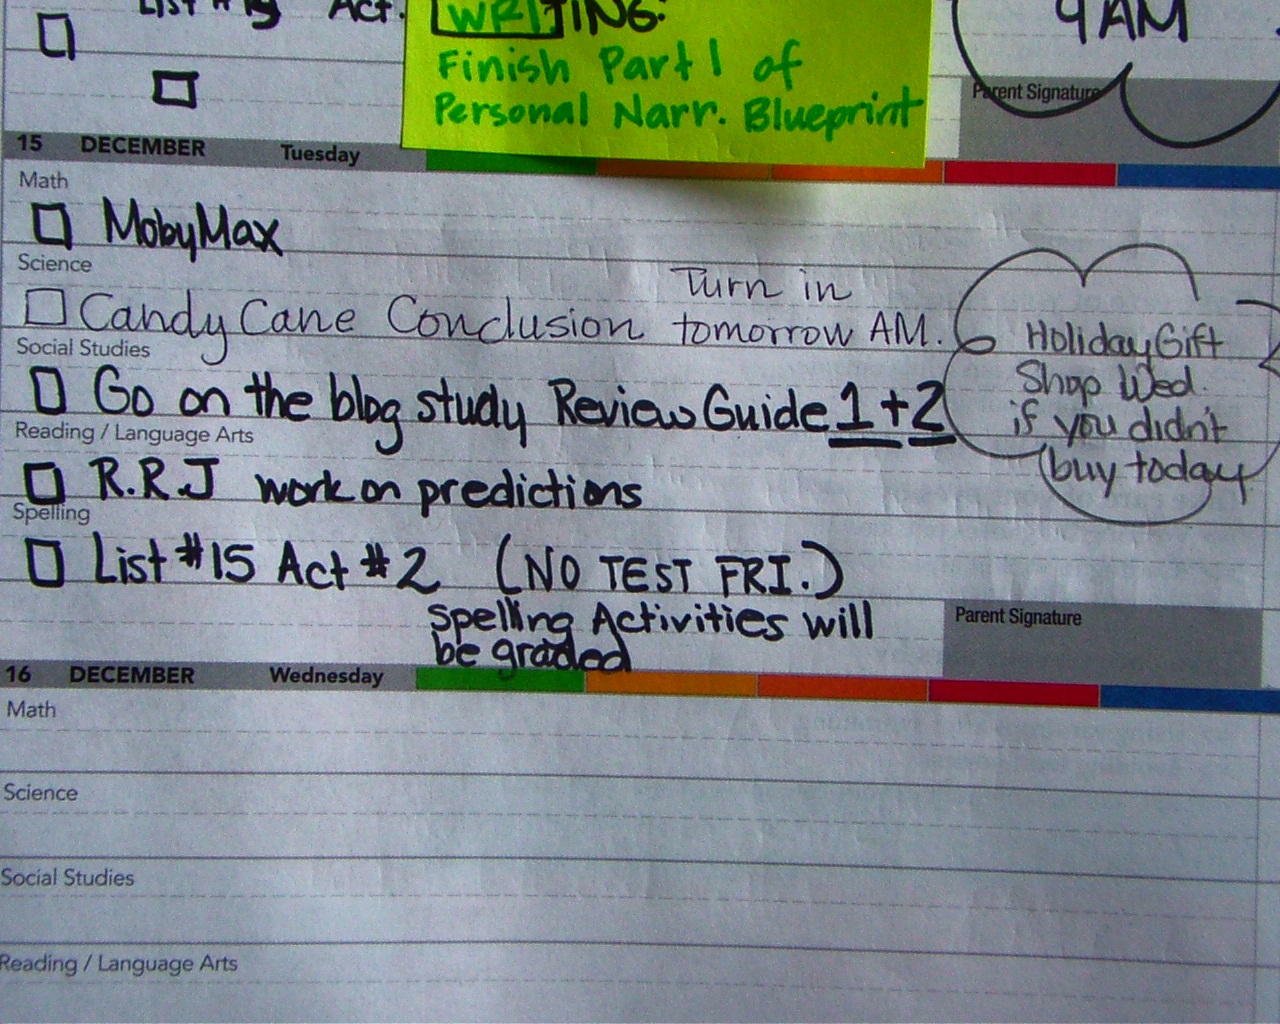 List #15 Act.
WRITING:
Finish Part 1 of
Personal Narr. Blueprint
9 AM
Parent Signature
15 DECEMBER Tuesday
Math
MobyMax
Science
Candy Cane Conclusion Turn in
tomorrow AM.
Social Studies
Go on the blog study Review Guide 1 + 2
Holiday Gift
Shop Wed.
if you didn't
buy today
Reading / Language Arts
R.R.J work on predictions
Spelling
List #15 Act #2 (NO TEST FRI.)
Spelling Activities will
be graded
Parent Signature
16 DECEMBER Wednesday
Math
Science
Social Studies
Reading / Language Arts